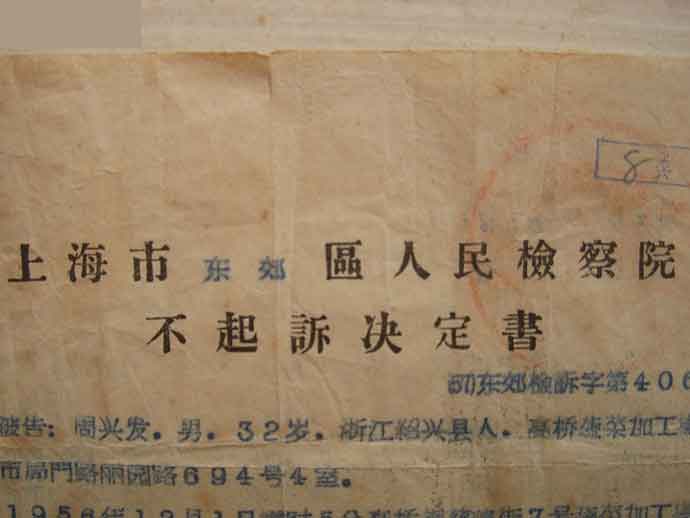 8
上海市 东郊 區人民檢察院
不起訴决定書
57)东郊檢訴字第406
被告:周兴发.男.32岁.浙江绍兴县人.高桥蔬菜加工
市局門路丽园路694号4室.
1956年12月1日